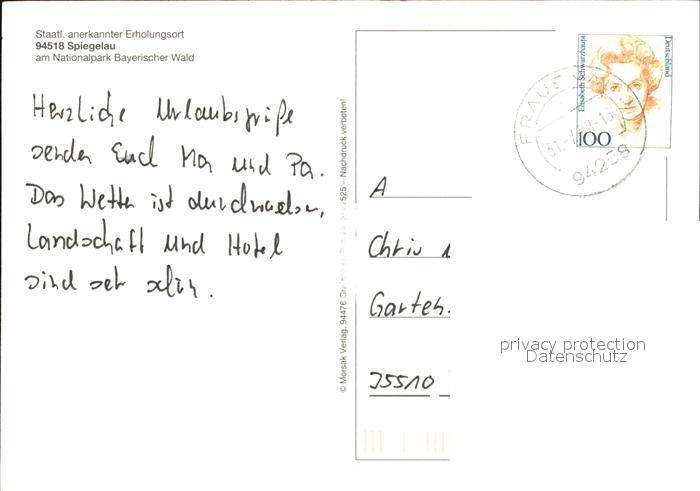 Staatl. anerkannter Erholungsort
94518 Spiegelau
am Nationalpark Bayerischer Wald
Herzliche Urlaubsgrüße
senden Euch Ma und Pa.
Das Wetter ist durchwachsen,
Landschaft und Hotel
sind sehr schön.
© Morsak Verlag, 94476 – Nachdruck verboten!
A
Chris
Garten
35510
Elisabeth Schwarzhaupt
Deutschland
100
94258
privacy protection
Datenschutz